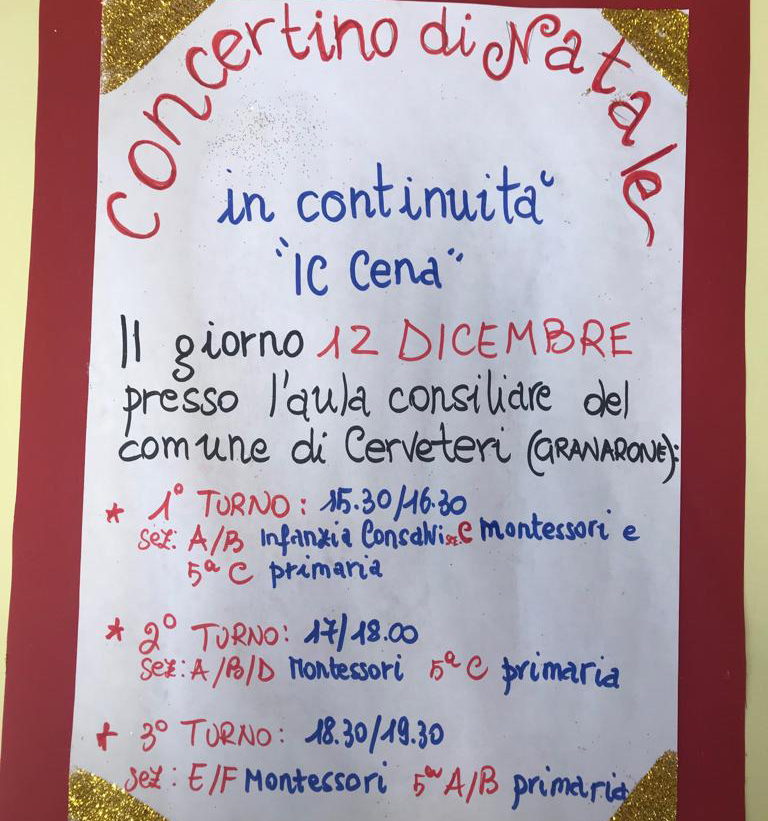 Concertino di Natale
in continuità
"IC Cena"
Il giorno 12 DICEMBRE
presso l'aula consiliare del
comune di Cerveteri (GRANARONE):
* 1° TURNO: 15.30/16.30
sez: A/B Infanzia Consalvi sez C Montessori e
5ª C primaria
* 2° TURNO: 17/18.00
sez: A/B/D Montessori 5ª C primaria
* 3° TURNO: 18.30/19.30
sez: E/F Montessori 5ª A/B primaria